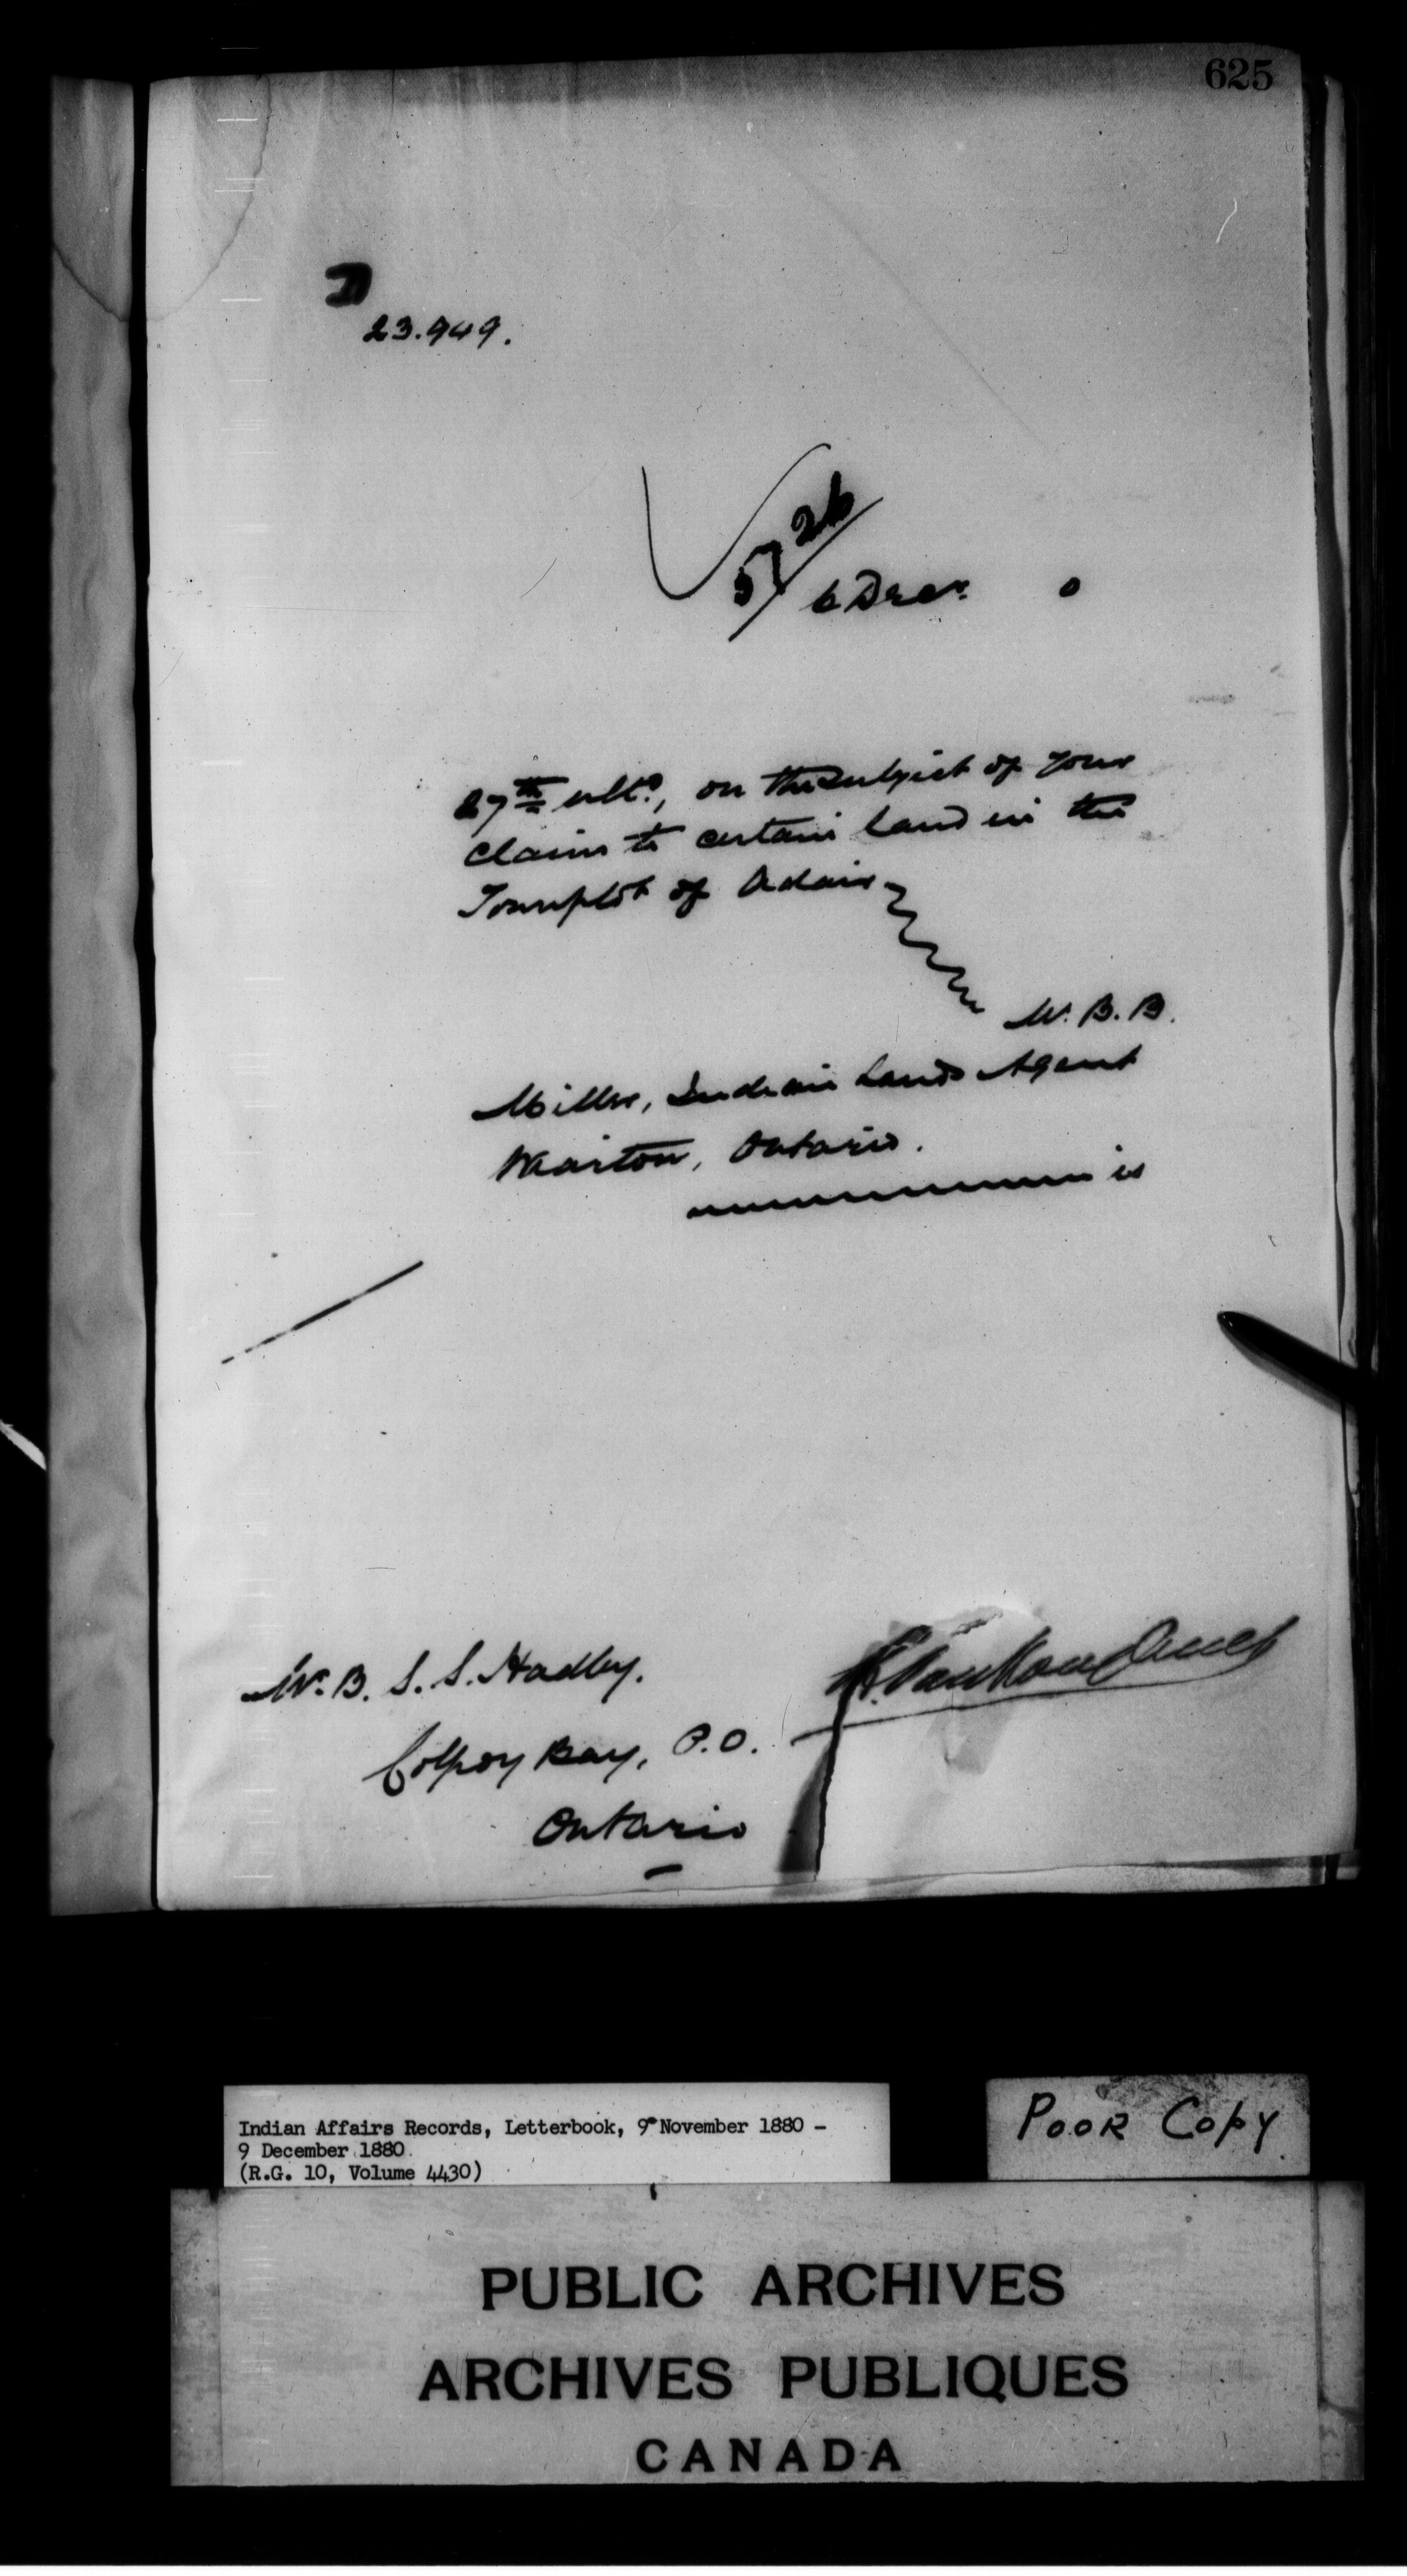 625
23.949.
57/26
6 Decr. 0
27th ulto, on the subject of your
claim to certain land in the
Townplot of Adair
W. B. B.
Miller, Indian Lands Agent
Wiarton, Ontario.
is
Mr. B. S. S. Hadley.
Colpoy Bay, P.O.
Ontario
L. VanKoughnet
Indian Affairs Records, Letterbook, 9 November 1880 -
9 December 1880
(R.G. 10, Volume 4430)
POOR COPY
PUBLIC ARCHIVES
ARCHIVES PUBLIQUES
CANADA